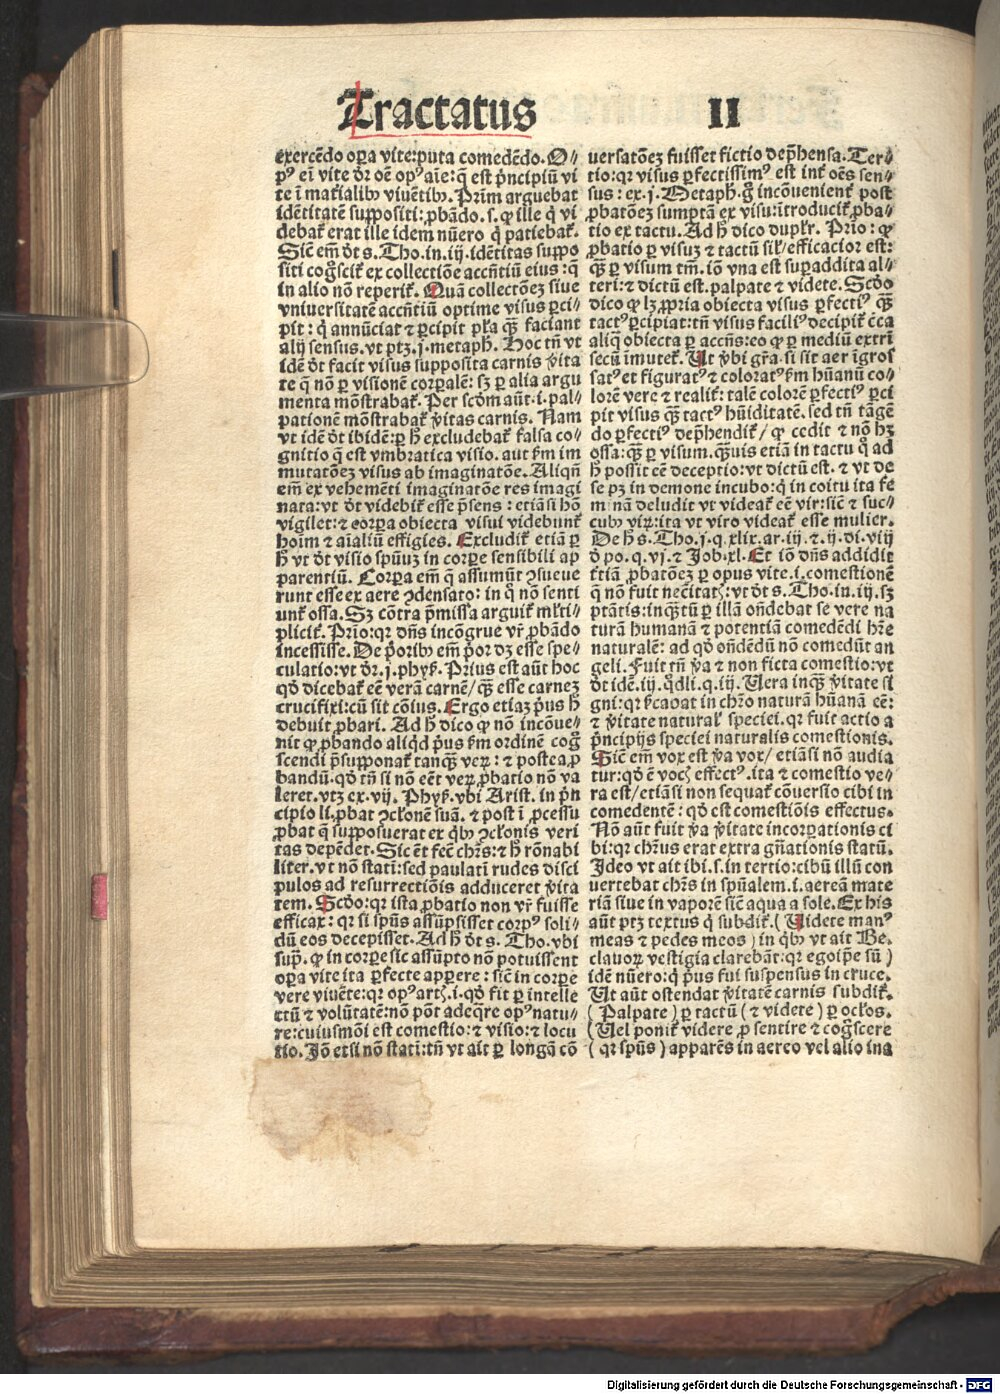 Tractatus II
exercēdo oꝑa vite:puta comedēdo. O⸗
pꝰ eī vite dr̄ oē opꝰ aīe:q̄ est pͥncipiū vi
te ī mat̄ialibꝫ viuētibꝫ. Prīm arguebat
idētitatē suppositi:ꝓbādo.s. ꝙ ille qͥ vi
debat̄ erat ille idem nūero qͥ patiebat̄.
Sic̄ em̄ dt̄ s. Tho.in.iij.idētitas suppo
siti cog̊scit̄ ex collectiōe accn̄tiū eius:q̄
in alio nō reperit̄. Quā collectōeꝫ siue
vniuersitatē accn̄tiū optime visus ꝑci⸗
pit: qͥ annūciat ⁊ ꝑcipit pl̄a qꝫ̄ faciant
alij sensus.vt ptꝫ.j.metaph. Hoc tn̄ vt
idē dt̄ facit visus supposita carnis v̄ita
te q̄ nō ꝑ visionē corꝑalē: sꝫ ꝑ alia argu
menta mōstrabat̄. Per scdm aūt.i.pal⸗
pationē mōstrabat̄ v̄itas carnis. Nam
vt idē dt̄ ibidē:ꝑ h̄ excludebat̄ falsa co⸗
gnitio q̄ est vmbratica visio.aut fm̄ im
mutatōeꝫ visus ab imaginatōe. Aliqn̄
em̄ ex vehemēti imaginatōe res imagi
nata:vt dt̄ videbit̄ esse pn̄s : etiāsi hō
vigilet:⁊ corꝑa obiecta visui videbunt̄
hoīm ⁊ aīaliū effigies. Excludit̄ etiā ꝑ
h̄ vt dt̄ visio spūuꝫ in corꝑe sensibili ap
parentiū. Corꝑa em̄ q̄ assumūt ꝯsueue
runt esse ex aere ꝯdensato: in qͦ nō senti
unt̄ ossa. Sꝫ cōtra pm̄issa arguit̄ ml̄ti⸗
plicit̄. Prīo:qr dn̄s incōgrue vr̄ ꝓbādo
incessisse. De pͥoribꝫ em̄ pͥor dꝫ esse spe⸗
culatio:vt dr̄.j.phys̄. Prius est aūt hoc
qd̄ dicebat̄ eē verā carnē/qꝫ̄ esse carneꝫ
crucifixi:cū sit cōius. Ergo etiaꝫ pͥus h̄
debuit ꝓbari. Ad h̄ dico ꝙ nō incōue⸗
nit ꝙ ꝓbando aliqͥd pͥus fm̄ ordinē cog̊
scendi pͥsupponat̄ tanqꝫ̄ veꝝ: ⁊ postea ꝓ
bandū.qd̄ tn̄ si nō eēt veꝝ ꝓbatio nō va
leret.vtꝫ ex.vij. Phys̄.vbi Arist. in pͥn
cipio li.ꝓbat ꝯclōnē suā. ⁊ post ī ꝓcessu
ꝓbat q̄ supposuerat ex qͥbꝫ ꝯclōnis veri
tas depēdet. Sic ēt fec̄ chrs̄:⁊ h̄ rōnabi
liter.vt nō statī:sed paulatī rudes disci
pulos ad resurrectiōis adduceret v̄ita
tem. Scd̄o:qr ista ꝓbatio non vr̄ fuisse
efficax: qr si spūs assūpsisset corpꝰ soli⸗
dū eos decepisset. Ad h̄ dt̄ s. Tho.vbi
supͣ. ꝙ in corꝑe sic assūpto nō potuissent
oꝑa vite ita ꝑfecte appeͣre: sic̄ in corꝑe
vere viuēte:qr opꝰ artꝭ.i.qd̄ fit ꝑ intelle
ctū ⁊ volūtatē:nō pōt adeqͣre opꝰ natu⸗
re:cuiusmōi est comestio:⁊ visio:⁊ locu
tio. Iō etsi nō statī:tn̄ vt ait ꝑ longā cō
uersatōeꝫ fuisset fictio depͥhensa. Ter⸗
tio:qr visus ꝑfectissimꝰ est int̄ oēs sen⸗
sus: ex.j. Metaph. g̊ incōuenient̄ post
ꝓbatōeꝫ sumptā ex visu:ītroducit̄ ꝓba⸗
tio ex tactu. Ad h̄ dico duplr̄. Prīo: ꝙ
ꝓbatio ꝑ visuꝫ ⁊ tactū sil̄/efficacior est:
qꝫ̄ ꝑ visum tm̄. iō vna est suꝑaddita al⸗
teri:⁊ dictū est.palpate ⁊ videte. Scd̄o
dico ꝙ lꝫ ꝓpria obiecta visus ꝑfectiꝰ qꝫ̄
tactꝰ ꝑcipiat:tn̄ visus faciliꝰ decipit̄ c̄ca
aliqͣ obiecta ꝑ accn̄s:eo ꝙ ꝑ mediū extrī
secū īmutet̄. Ut v̄bi gr̄a.si sit aer īgros
satꝰ et figuratꝰ ⁊ coloratꝰ fm̄ hūanū co⸗
lorē vere ⁊ realit̄: talē colorē ꝑfectiꝰ ꝑci
pit visus qꝫ̄ tactꝰ hūiditatē.sed tn̄ tāgē
do ꝑfectiꝰ depͥhendit̄/ ꝙ cedit ⁊ nō hꝫ
ossa:qꝫ̄ ꝑ visum.qꝫ̄uis etiā in tactu qͦ ad
h̄ possit eē deceptio:vt dictū est. ⁊ vt de
se pꝫ in demone incubo:qͥ in coitu ita fe
m̄ nā deludit vt videat̄ eē vir:sic̄ ⁊ suc⸗
cubꝰ viꝝ:ita vt viro videat̄ esse mulier.
De h̄ s. Tho.j.q.xlix.ar.iij.⁊.ij.di.viij
⁊ po.q.vj.⁊ Job.xl. Et iō dn̄s addidit
t̄tiā ꝓbatōeꝫ ꝑ opus vite.i.comestionē
q̄ nō fuit nec̄itatꝭ:vt dt̄ s. Tho.in.iij.sꝫ
ptātis:inqͣtū ꝑ illā on̄debat se vere na
turā humanā ⁊ potentiā comedēdi hr̄e
naturalē: ad qd̄ on̄dēdū nō comedūt an
geli. Fuit tn̄ v̄a ⁊ non ficta comestio:vt
dt̄ idē.iij.qͦdli.q.iij. Uera inqꝫ̄ v̄itate si
gni:qr pͥcabat in chr̄o naturā hūanā eē:
⁊ v̄itate naturał speciei.qr fuit actio a
pͥncipijs speciei naturalis comestionis.
Sic̄ em̄ vox est v̄a vox/ etiāsi nō audia
tur:qd̄ ē vocꝭ effectꝰ.ita ⁊ comestio ve⸗
ra est/etiāsi non sequat̄ cōuersio cibi in
comedentē: qd̄ est comestiōis effectus.
Nō aūt fuit v̄a v̄itate incorꝑationis ci
bi:qr chrūs erat extra gn̄ationis statū.
Ideo vt ait ibi.s.in tertio:cibū illū con
uertebat chrs̄ in spūalem.i.aereā mate
riā siue in vaporē sic̄ aqua a sole. Ex his
aūt ptꝫ textus qͥ subdit̄. ( Uidete manꝰ
meas ⁊ pedes meos ) in qͥbꝫ vt ait Be.
clauoꝝ vestigia clarebāt:qr egoip̄e sū )
idē nūero:qͥ pͥus fui suspensus in cruce.
Ut aūt ostendat v̄itatē carnis subdit̄.
( Palpate ) ꝑ tactū (⁊ videte) ꝑ ocl̄os.
(Uel ponit̄ videre ꝓ sentire ⁊ cog̊scere
( qr spūs ) apparēs in aereo vel alio ina
Digitalisierung gefördert durch die Deutsche Forschungsgemeinschaft - DFG